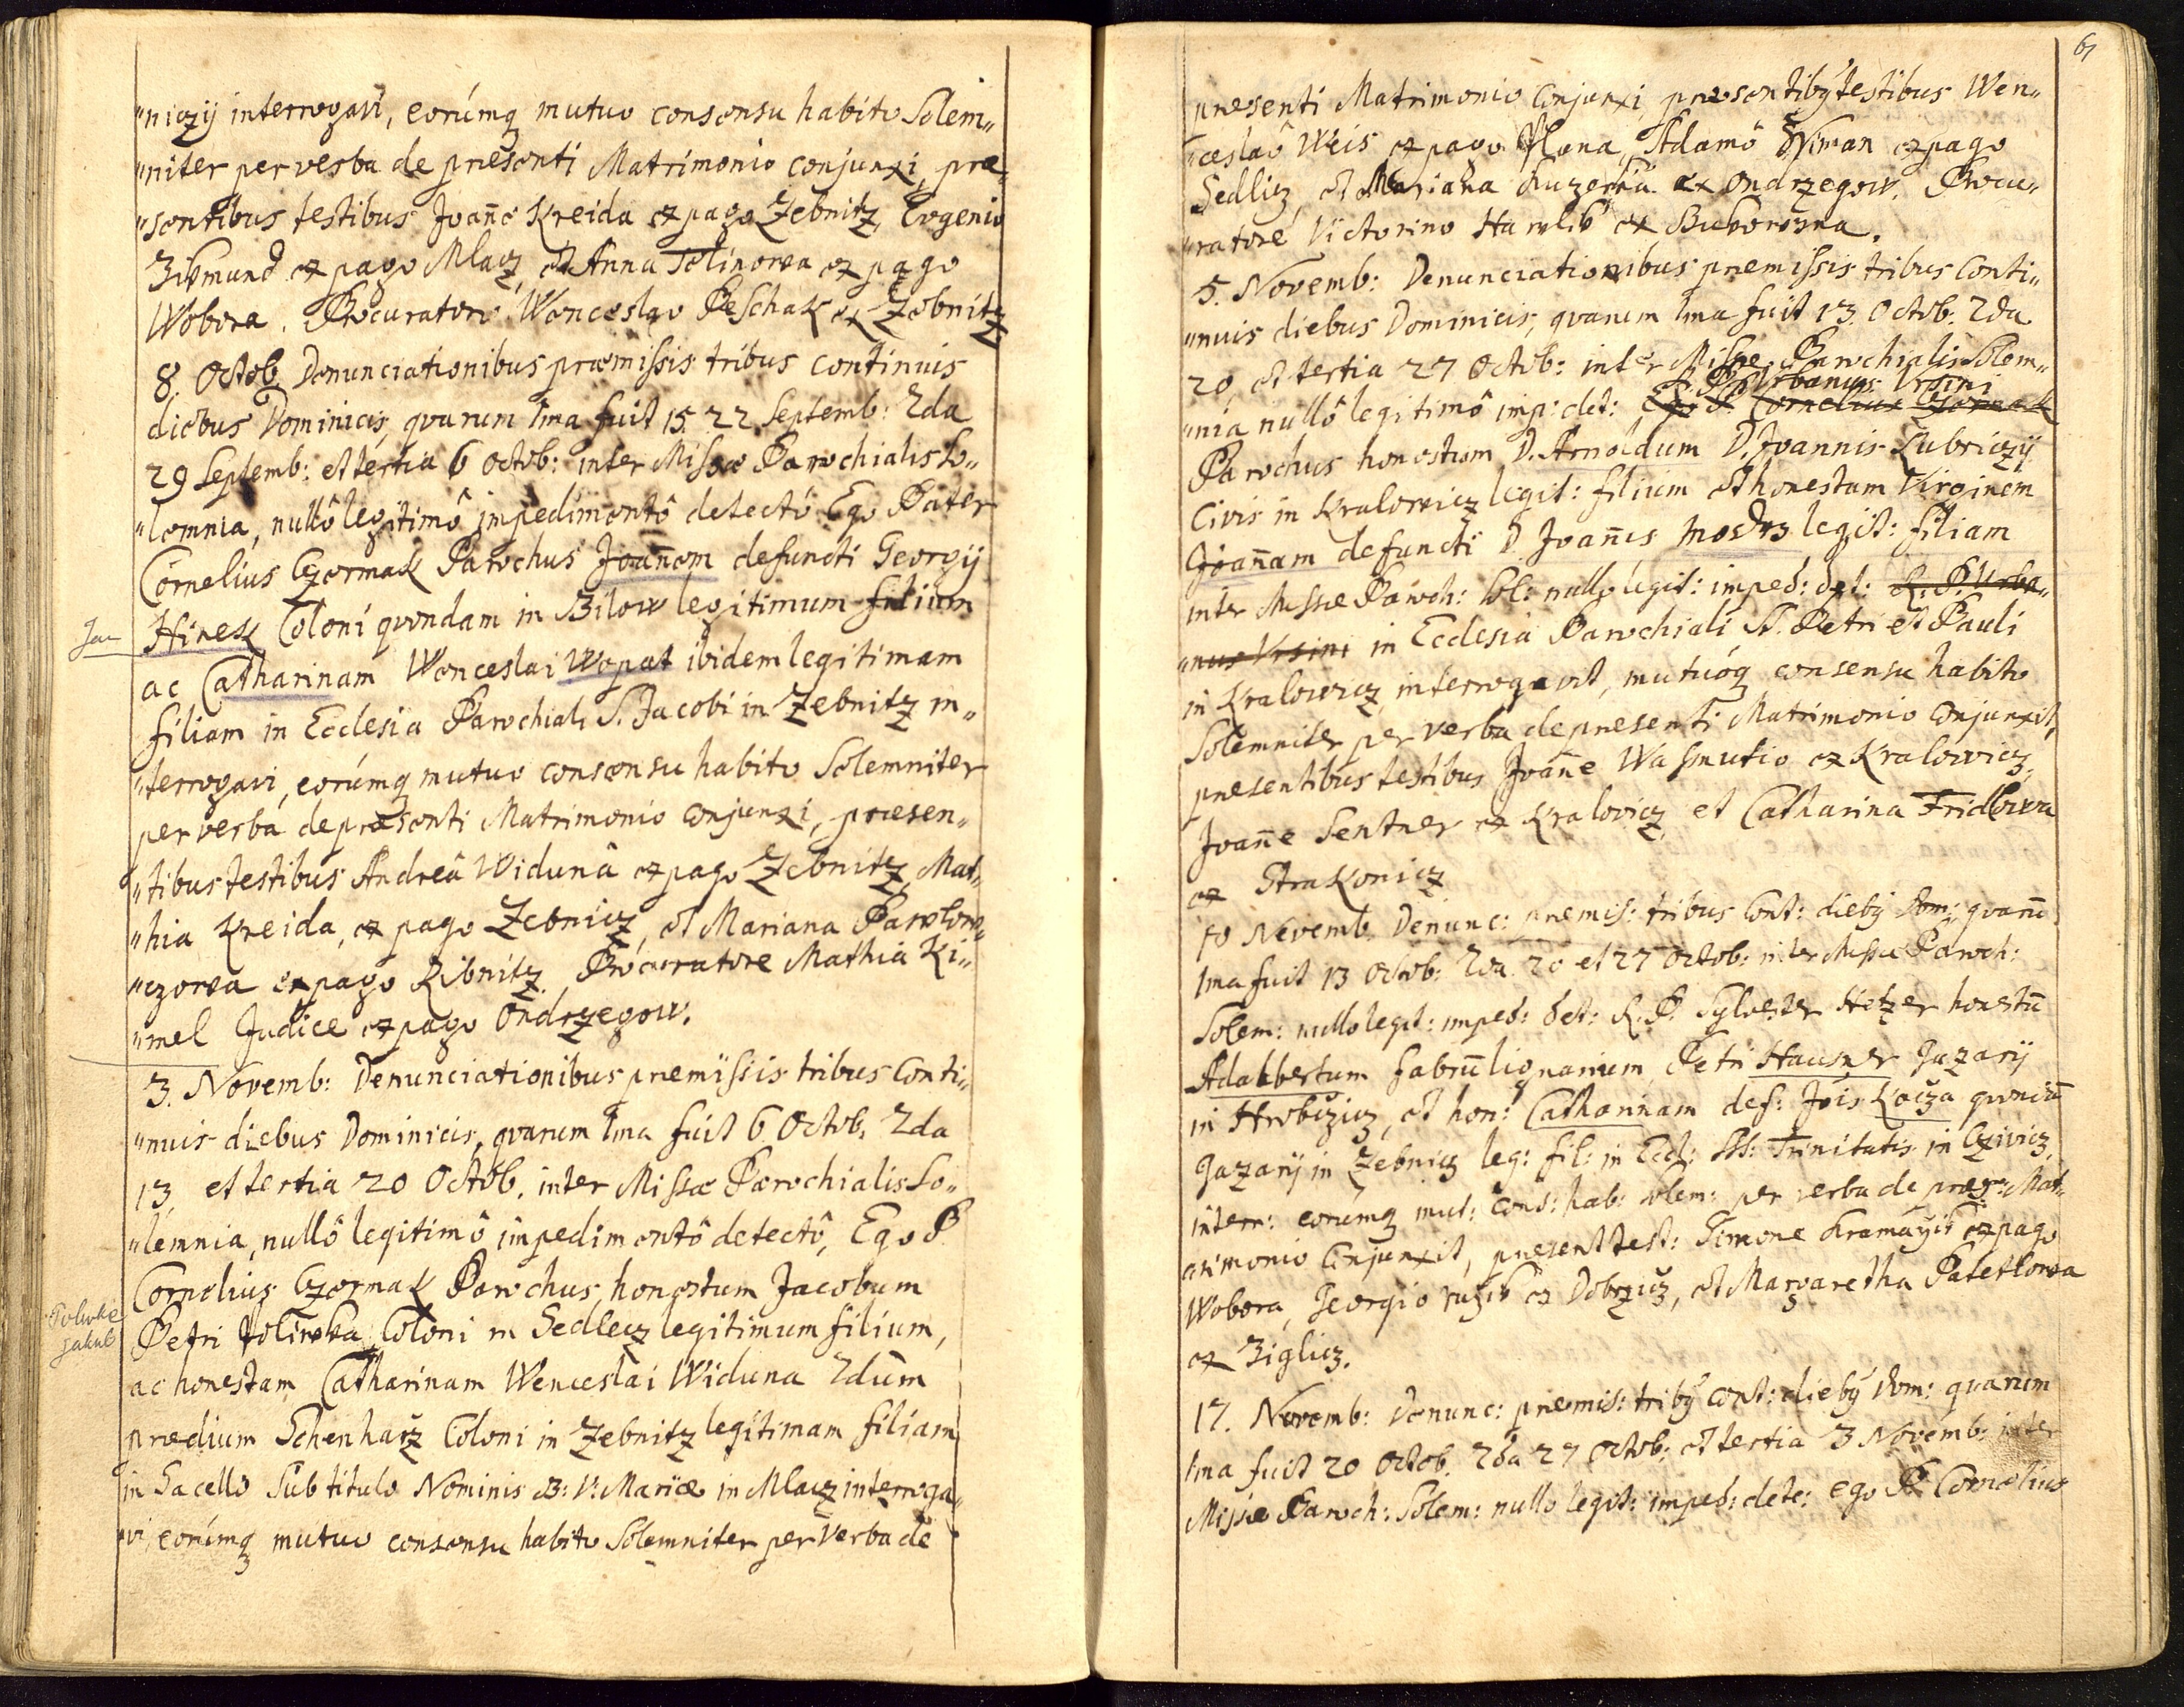 „niczij interrogavi, eorúmq mutuo consensu habito Solem„
„niter per verba de præsenti Matrimonio conjunxi, præ„
„sentibus testibus Joañe Kreida ex pago Zebnitz, Evgenio
Zikmund ex pago Mlacz, et Anna Tolinowa ex pago
Wobora. Procuratore Wenceslao Peschak ex Zebnitz
8. Octob. Denunciationibus præmissis tribus continuis
diebus Dominicis, quarum 1ma fuit 15. 22 Septemb: 2da
29 Septemb: et tertia 6 Octob: inter Missæ Parochialis So„
„lemnia, nullô legitimô impedimentô detectô Ego Pater
Cornelius Czermak Parochus Joañem defuncti Georgij
Hinek Coloni quondam in Bilow legitimum filium
Jan
ac Catharinam Wenceslai Wopat ibidem legitimam
filiam in Ecclesia Parochiali S. Jacobi in Zebnitz in„
„terrogavi, eorúmq mutuo consensu habito Solemniter
per verba de præsenti Matrimonio conjunxi, præsen„
„tibus testibus Andreâ Widunâ ex pago Zebnitz, Mat„
„hia Kreida, ex pago Zebnicz, et Mariana Pawlow„
„czowa ex pago Ribnitz. Procuratore Mathia Ki„
„mel Judice ex pago Ondrzegow.
3. Novemb: Denunciationibus præmissis tribus Conti„
„nuis diebus Dominicis, quarum 1ma fuit 6 Octob. 2da
13, et tertia 20 Octob. inter Missæ Parochialis So„
„lemnia, nullô legitimô impedimentô detectô, Ego P.
Cornelius Czermak Parochus, honestum Jacobum
Poliwke
Jakub
Petri Poliwka Coloni in Sedlecz legitimum filium,
ac honestam Catharinam Wenceslai Widuna 2dum
prædium Schenharz Coloni in Zebnitz legitimam filiam
in Sacello Sub titulo Nominis B: V: Mariæ in Mlacz interroga„
„vi, eorúmq mutuo consensu habito Solemniter per verba de
61
præsenti Matrimonio Conjunxi, præsentibq testibus Wen„
„ceslaô Weis ex pago Plana, Adamô Ssiman ex pago
Sedlicz, et Mariana Ruzerka ex Ondrzegow. Procu„
„ratore Victorino Hawlik ex Bukowina.
5. Novemb: Denunciationibus præmissis tribus Conti„
„nuis diebus Dominicis, quarum 1ma fuit 13. Octob. 2da
20, et tertia 27 Octob: inter Missæ Parochialis Solem„
R. P. Urbanus Ursini
„nia nullô legitimô imp: det: Ego P. Cornelius Czermak
Parochus honestum D. Arnoldum D. Joannis Lubriczij
Civis in Kralowicz legit: filium et honestam Virginem
Joañam defuncti D. Joañis Modrz legit: filiam
inter Missæ Paroch: Sol: nullo legit: imped: det: R. P. Urba„
„nus Ursini in Ecclesia Parochiali SS. Petri et Pauli
in Kralowicz, interrogavit, mutuóq consensu habito
Solemniter per verba de præsenti Matrimonio Conjunxit,
præsentibus testibus Joañe Wasmutio ex Kralowicz,
Joañe Sentner ex Kralovicz, et Catharina Fridlowa
ex Strakonicz
10 Novemb. Denunc: præmis: tribus Cont: diebq Dom: quarū
1ma fuit 13 Octob: 2da 20 et 27 Octob: inter Missæ Paroch:
Solem: nullo legit: imped: det: R. P. Sylvester Hetzer honestū
Adalbertum fabrū lignarium Petri Hausner Gazarij
in Hrobczicz, et hon: Catharinam def: Jois Kocza quondā
Gazarij in Zebnicz leg: fil: in Eccl: SSS: Trinitatis in Cziwicz,
interr: eorúmq mut: cons: hab: solem: per verba de præs: Mat„
„rimonio Conjunxit, præsent test: Simone Kramayis ex pago
Wobora, Georgio ruzik ex Dobrzicz, et Margaretha Patetlowa
ex Ziglicz.
17. Novemb: Denunc: præmis: tribq cont: diebq Dom: quarum
1ma fuit 20 Octob. 2da 27 Octob: et tertia 3 Novemb: inter
Missæ Paroch: Solem: nullo legit: imped: dete: ego P. Cornelius